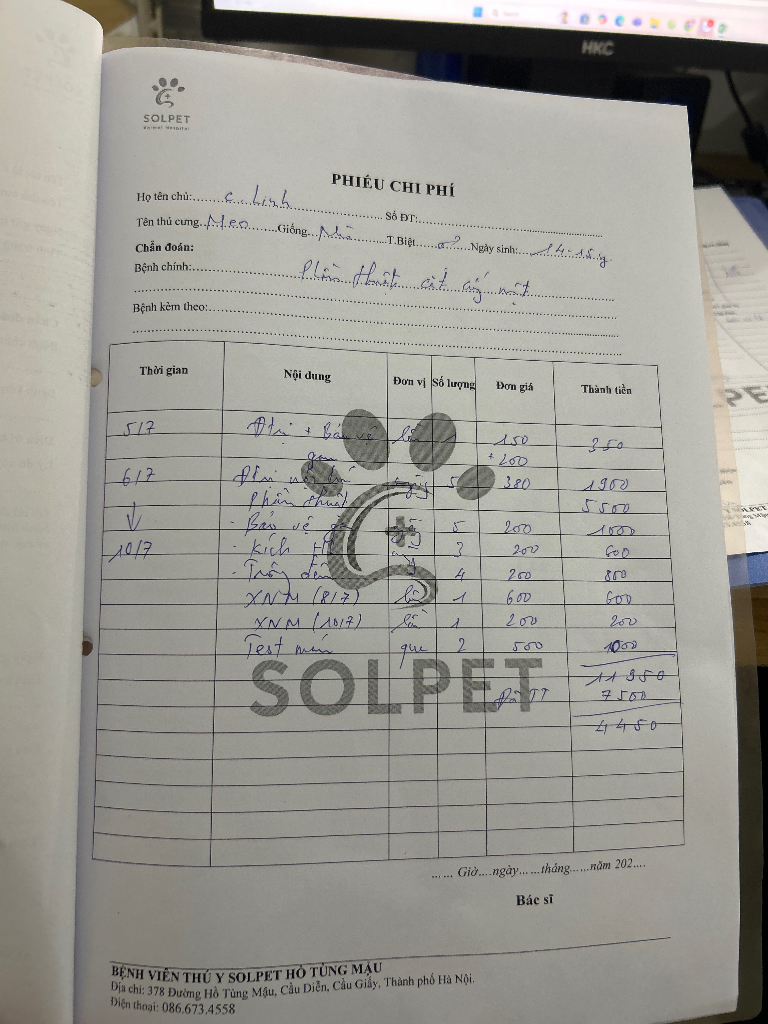 HKC
SOLPET
Animal Hospital
PHIẾU CHI PHÍ
Họ tên chủ: C. Linh Số ĐT:
Tên thú cưng Meo Giống T.Biệt Ngày sinh: 14-15y
Chẩn đoán:
Bệnh chính: Phẫu thuật cắt ống mật
Bệnh kèm theo:
Thời gian Nội dung Đơn vị Số lượng Đơn giá Thành tiền
5/7 Đtrị + Bảo vệ lần 1 150 350
gan + 200
6/7 Đtrị nội trú ngày 5 380 1900
Phẫu thuật 5500
- Bảo vệ 5 200 1000
10/7 - Kích 3 200 600
- Trông đêm 4 200 800
XNM (8/7) lần 1 600 600
XNM (10/7) lần 1 200 200
Test máu que 2 500 1000
SOLPET
11 950
Đã TT 7500
4450
...... Giờ....ngày......tháng......năm 202....
Bác sĩ
BỆNH VIỆN THÚ Y SOLPET HỒ TÙNG MẬU
Địa chỉ: 378 Đường Hồ Tùng Mậu, Cầu Diễn, Cầu Giấy, Thành phố Hà Nội.
Điện thoại: 086.673.4558